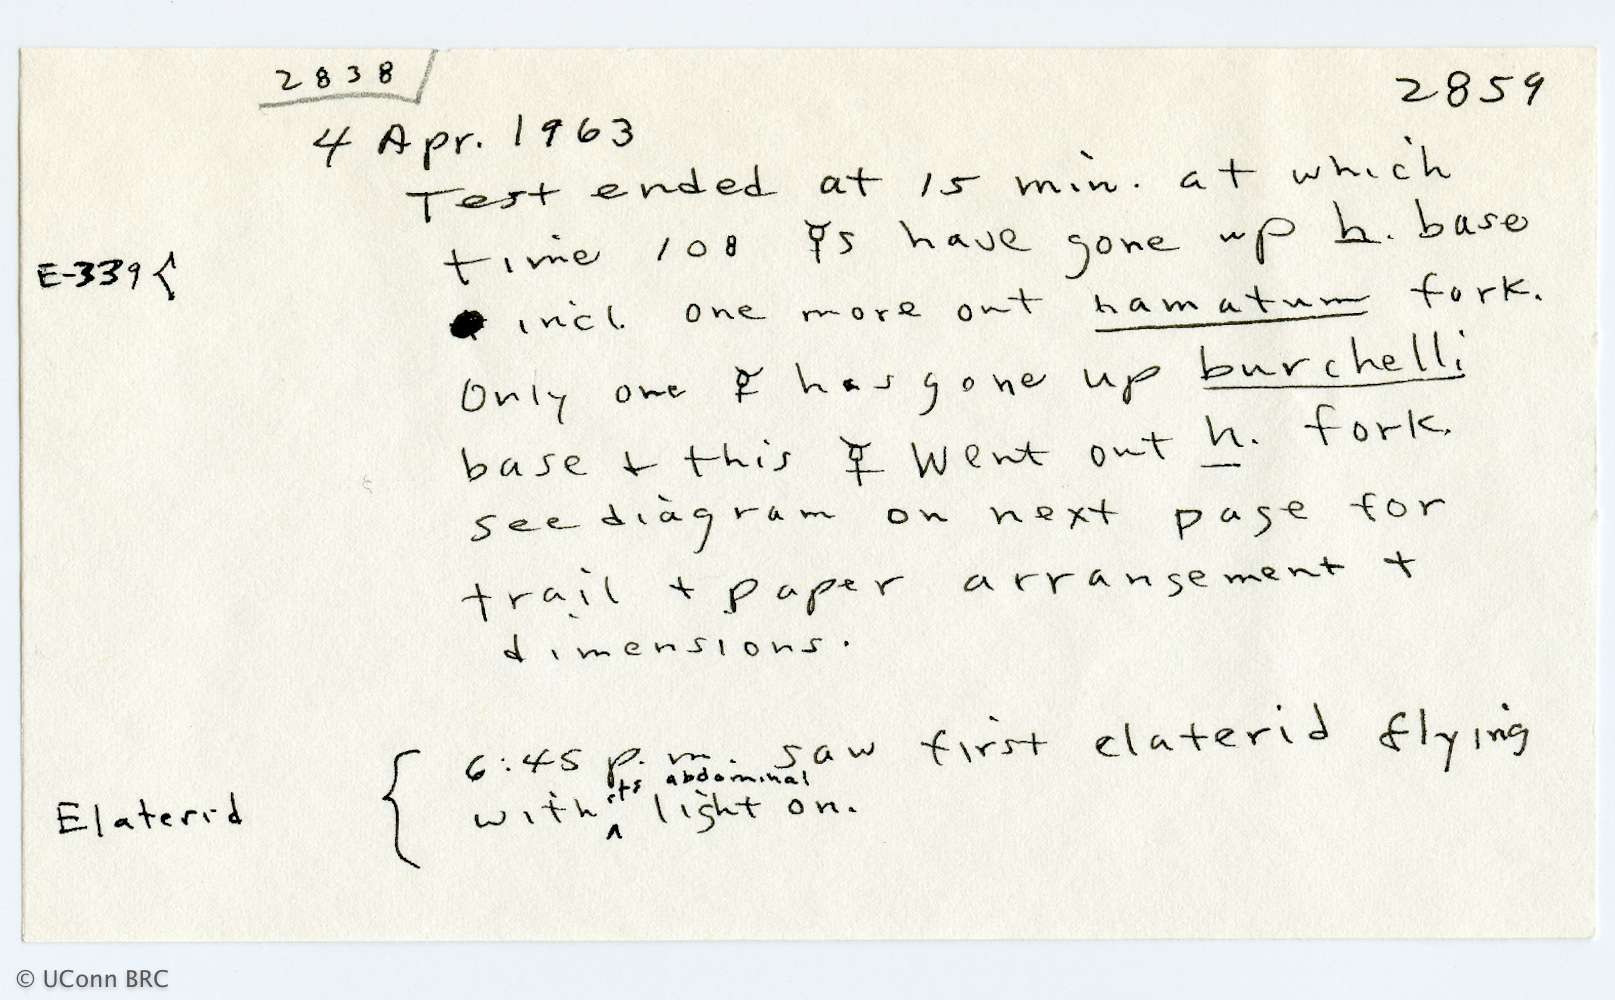 2838
2859
4 Apr. 1963
Test ended at 15 min. at which
E-339 { time 108 ☿s have gone up h. base
incl. one more out hamatum fork.
Only one ☿ has gone up burchelli
base + this ☿ went out h. fork.
see diagram on next page for
trail + paper arrangement +
dimensions.
6:45 p.m. saw first elaterid flying
Elaterid { with ^ its abdominal light on.
© UConn BRC